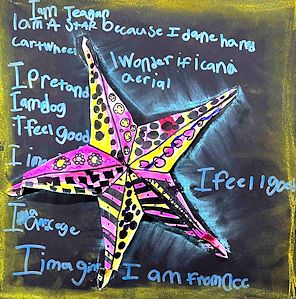 I am Teagan
I am A STAR because I dane hand
cartwheel
I wonder if i can a
aerial
I Pretand
I am dog
I feel good
I im
I feel l good
I am a
I imagin
I am from Occ